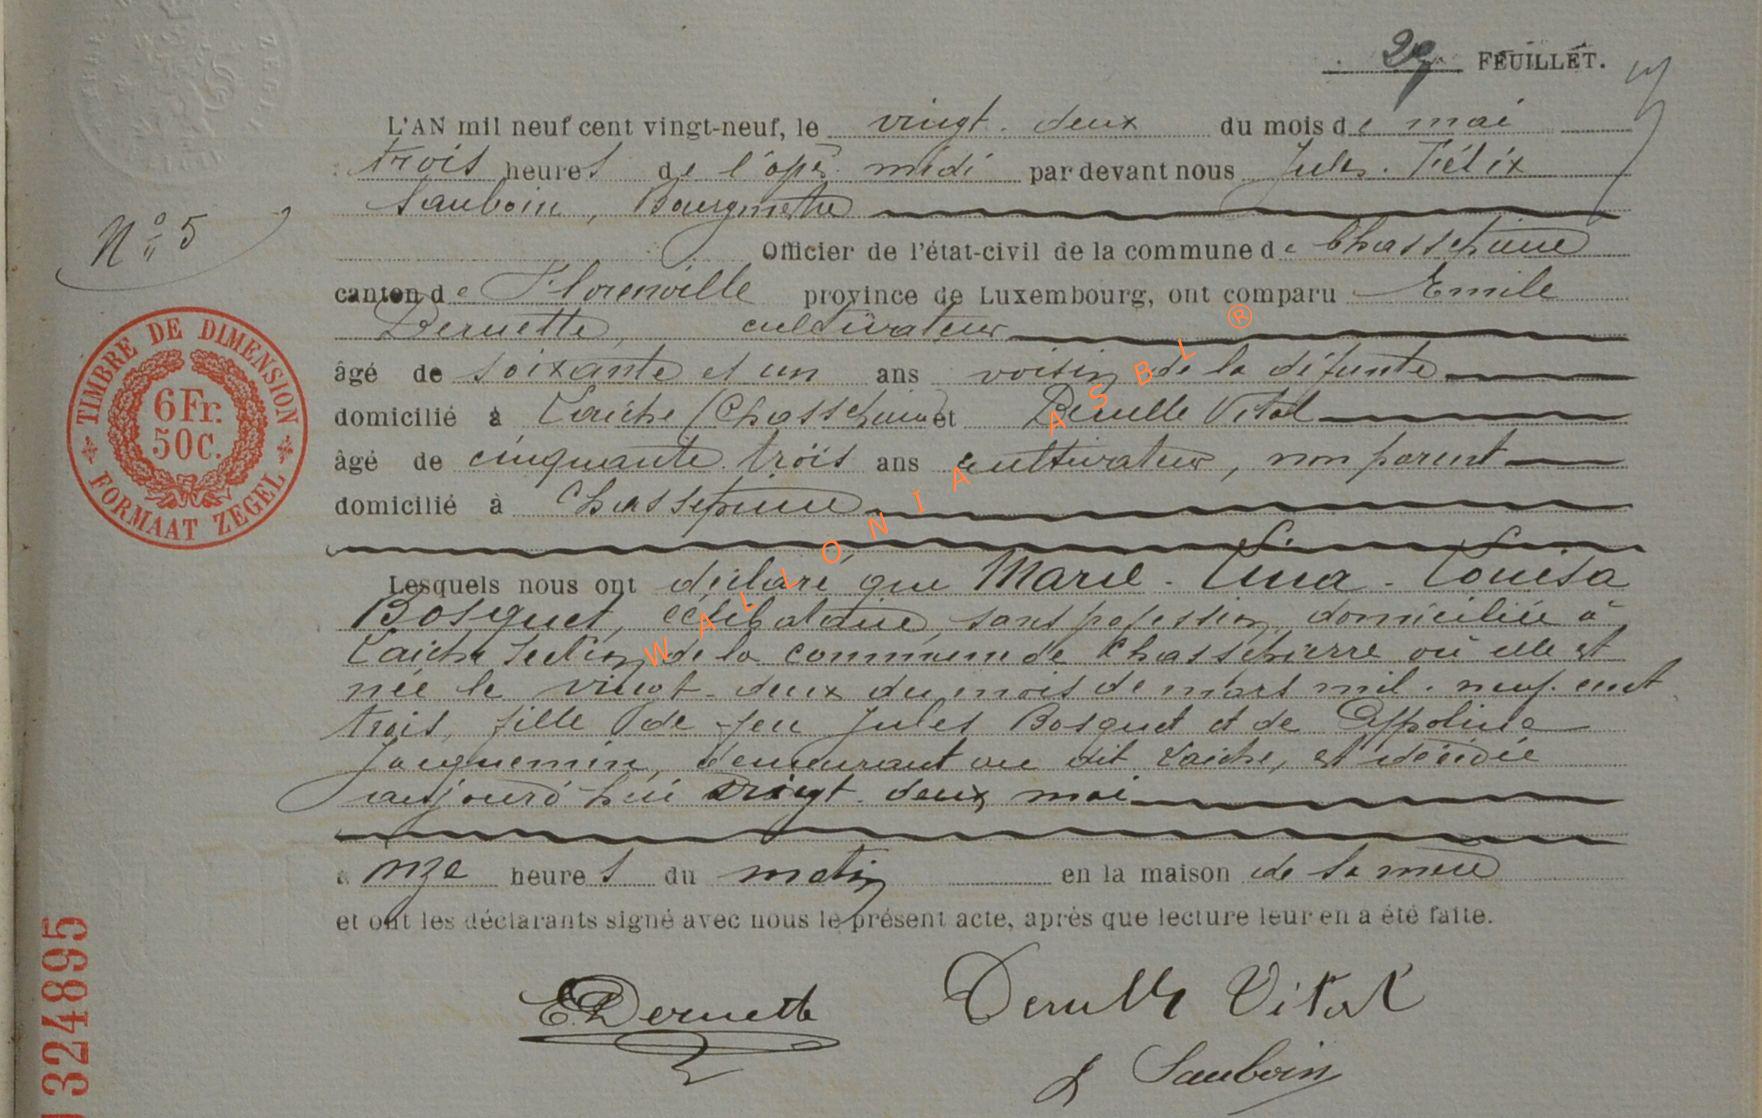 29 FEUILLET.
L'AN mil neuf cent vingt-neuf, le vingt-deux du mois de mai
trois heures de l'ap. midi par devant nous Jules-Félix
Sauboin, Bourgmestre
N° 5
Officier de l'état-civil de la commune de Chassepierre
canton de Florenville province de Luxembourg, ont comparu Emile
Deruette, cultivateur
âgé de soixante et un ans voisin de la défunte
domicilié à Laiche (Chassepierre) et Deruelle Vital
âgé de cinquante trois ans cultivateur, non parent
domicilié à Chassepierre
Lesquels nous ont déclaré que Marie-Lina-Louisa
Bosquet, célibataire, sans profession domiciliée à
Laiche section de la commune de Chassepierre où elle est
née le vingt-deux du mois de mars mil-neuf-cent
trois, fille de feu Jules Bosquet et de Appoline
Jacquemin, demeurant au dit Laiche, est décédée
aujourd'hui vingt-deux mai
à onze heures du matin en la maison de sa mère
et ont les déclarants signé avec nous le présent acte, après que lecture leur en a été faite.
E Deruette Deruelle Vital
J Sauboin
TIMBRE DE DIMENSION
6 Fr.
50 C.
FORMAAT ZEGEL
324895
WALLONIA ASBL ®